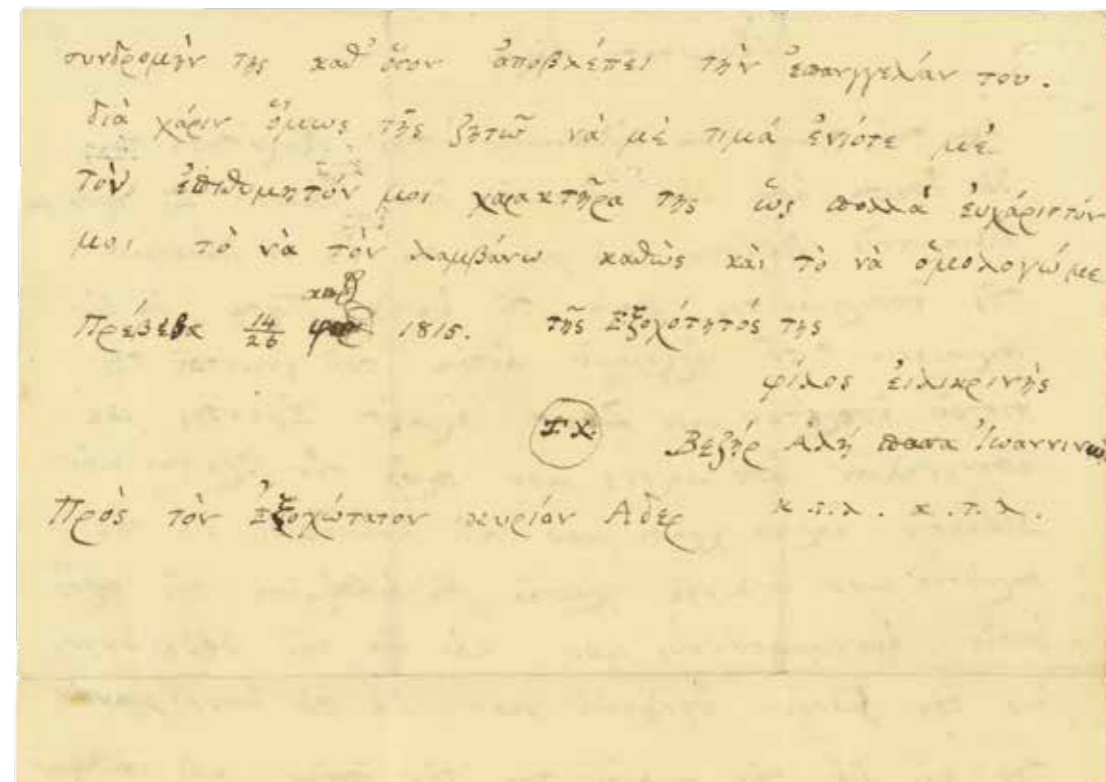 συνδρομὴν της καθ' ὅσον ἀποβλέπει τὴν ἐπανγγελίαν του.
διὰ χάριν ὅμως τῆς ζητῶ νὰ μὲ τιμᾶ ἐνίοτε μὲ
τὸν ἐπιθυμητόν μοι χαρακτῆρα της ὡς πολλὰ εὐχάριστόν
μοι τὸ νὰ τὸν λαμβάνω καθὼς καὶ τὸ νὰ ὁμολογῶμε
Πρέβεζα 14/26 1815. τῆς Ἐξοχότητός της
φίλος εἰλικρινὴς
Τχ. Βεζὴρ Ἀλῆ πασα Ἰωαννίνων
Πρὸς τὸν Ἐξοχώτατον κυρίον Ἀδερ κ.τ.λ. κ.τ.λ.